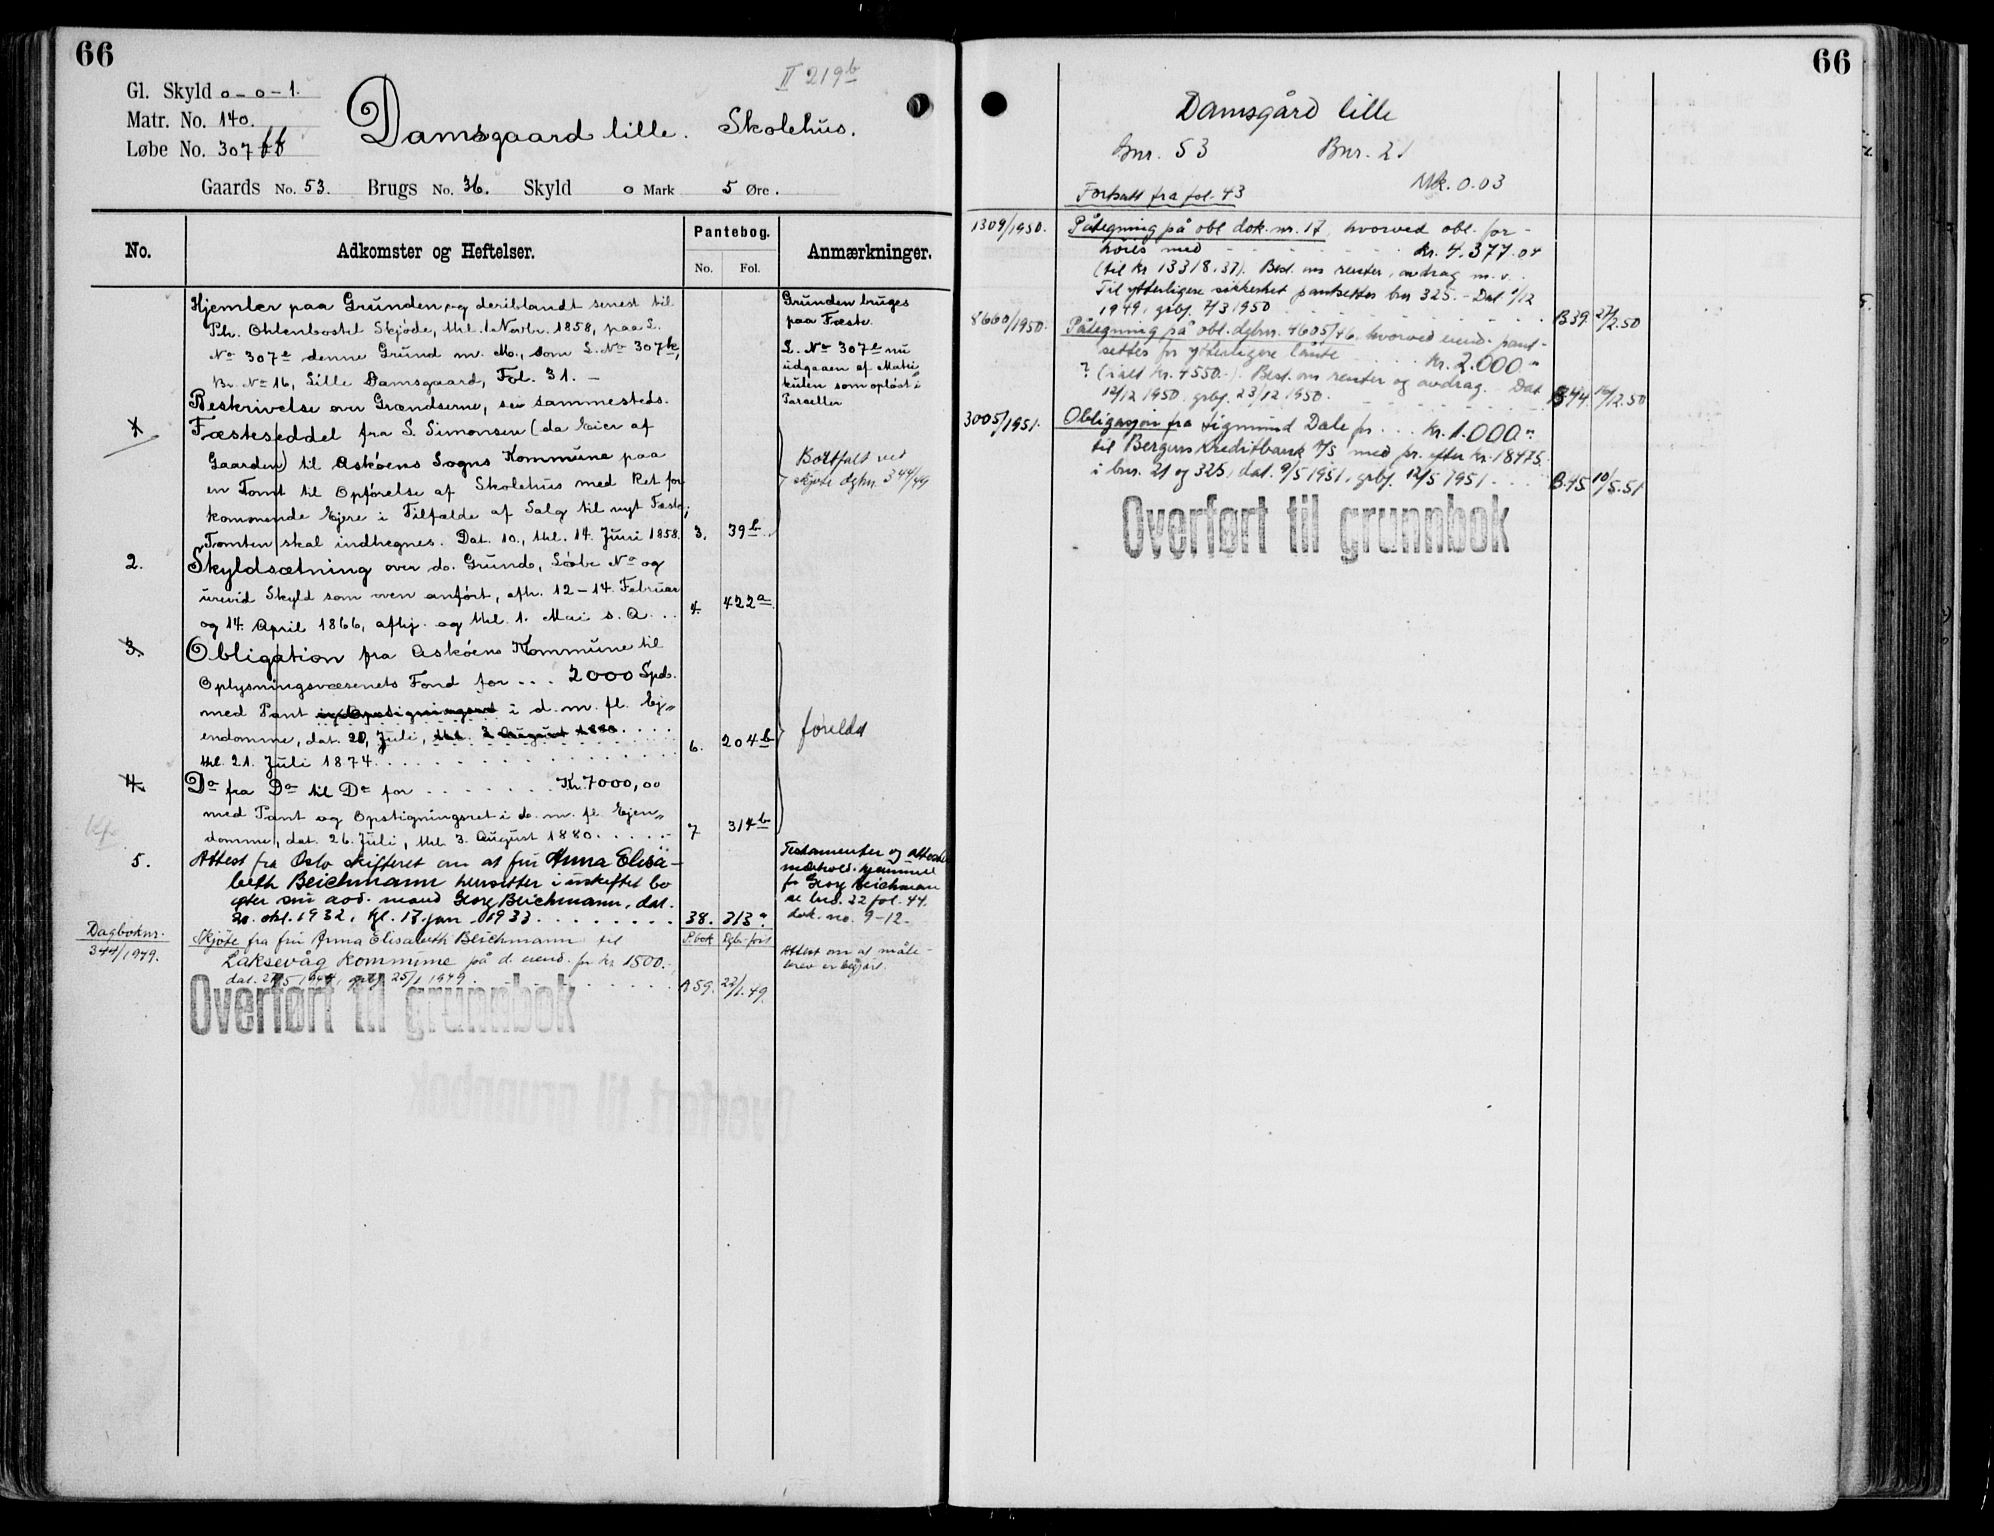 66
II 219 b
Gl. Skyld 0-0-1.
Matr. No. 140.
Løbe No. 307 bb
Damsgaard lille. Skolehus.
Gaards No. 53. Brugs No. 36. Skyld 0 Mark 5 Øre.
No. Adkomster og Heftelser. Pantebog. No. Fol. Anmærkninger.
Hjemler paa Grunden, og deriblandt senest til
Ph. Ohlenbostel Skjøde, thl. 1. Novbr. 1858, paa L.
No 307 e denne Grund m. M., som L. No 307 k,
Br. No 16, Lille Damsgaard, Fol. 31. —
Beskrivelse over Grændserne, sei sammesteds.
Grunden bruges
paa Fæste.
L. No 307 e nu
udgaaen af Matri-
kulen som opløst i
Parceller
1 Fæsteseddel fra S. Simonsen (da Eier af
Gaarden) til Askøens Sogns Kommune paa
en Tomt til Opførelse af Skolehus med Ret for
kommende Ejere i Tilfælde af Salg til nyt Fæste;
Tomten skal indhegnes. Dat. 10., thl. 14. Juni 1858. 3. 39 b
Bortfalt ved
skjøte dgbnr. 344/49
2. Skyldsætning over do. Grund, Løbe No og
urevid Skyld som oven anført, afh. 12-14. Februar
og 14. April 1866, afhj. og thl. 1. Mai s. A. .. 4. 422 a
3. Obligation fra Askøens Kommune til
Oplysningsvæsenets Fond for ... 2000 Spd.
med Pant i d. m. fl. Ej-
endomme, dat. 20, Juli, thl. 3 August 1880 . . . .
thl. 21. Juli 1874. 6. 204 b
forelda
4. Do fra Do til Do for . . . . . . . Kr. 7000,00
med Pant og Opstigningsret i do. m. fl. Ejen-
domme, dat. 26. Juli, thl. 3. August 1880. . . . . 7 314 b
5. Attest fra Oslo skifteret om at fru Anna Elisa-
beth Beichmann hensitter i uskiftet bo
efter sin avd. mand Georg Beichmann, dat.
20. okt. 1932, tgl. 17. jan. 1933 . . . . . . . 38. 313 a
Testamenter og
hjemmel
for Georg Beichmann
se bnr. 22 fol. 44.
dok. no. 9-12
Dagboknr.
344/1949.
P.bok Dgb. ført
Skjøte fra fru Anna Elisabeth Beichmann til
Laksevåg kommune på d. eiend. for kr. 1500.-
dat. 1948, grbf. 25/1 1949 . . . . . . A 59. 22/1.49.
Attest om at måle-
brev er begjært.
Overført til grunnbok
66
Damsgård lille
Gnr. 53 Bnr. 21
Mk. 0.03
Fortsatt fra fol. 43
1309/1950. Påtegning på obl. dok. nr. 17, hvorved obl. for-
høies med kr. 4.377.04
(til kr. 13318.37). Best. om renter, avdrag m. v.
Til ytterligere sikkerhet pantsettes bnr. 325. - Dat. 1/12
1949, grbf. 7/3 1950 B39 27/2.50
8660/1950. Påtegning på obl. dgbnr. 4605/46, hvorved eiend. pant-
settes for ytterligere lånte kr. 2.000."
? (ialt kr. 4550.-). Best. om renter og avdrag. Dat.
12/12 1950, grbf. 23/12 1950. B44 14/12.50
3005/1951. Obligasjon fra Sigmund Dale for ... kr. 1.000."
til Bergens Kreditbank A/S med pr. efter kr. 18475.
i bnr. 21 og 325, dat. 9/5 1951, grbf. 12/5 1951. . . . B.45 10/5.51
Overført til grunnbok